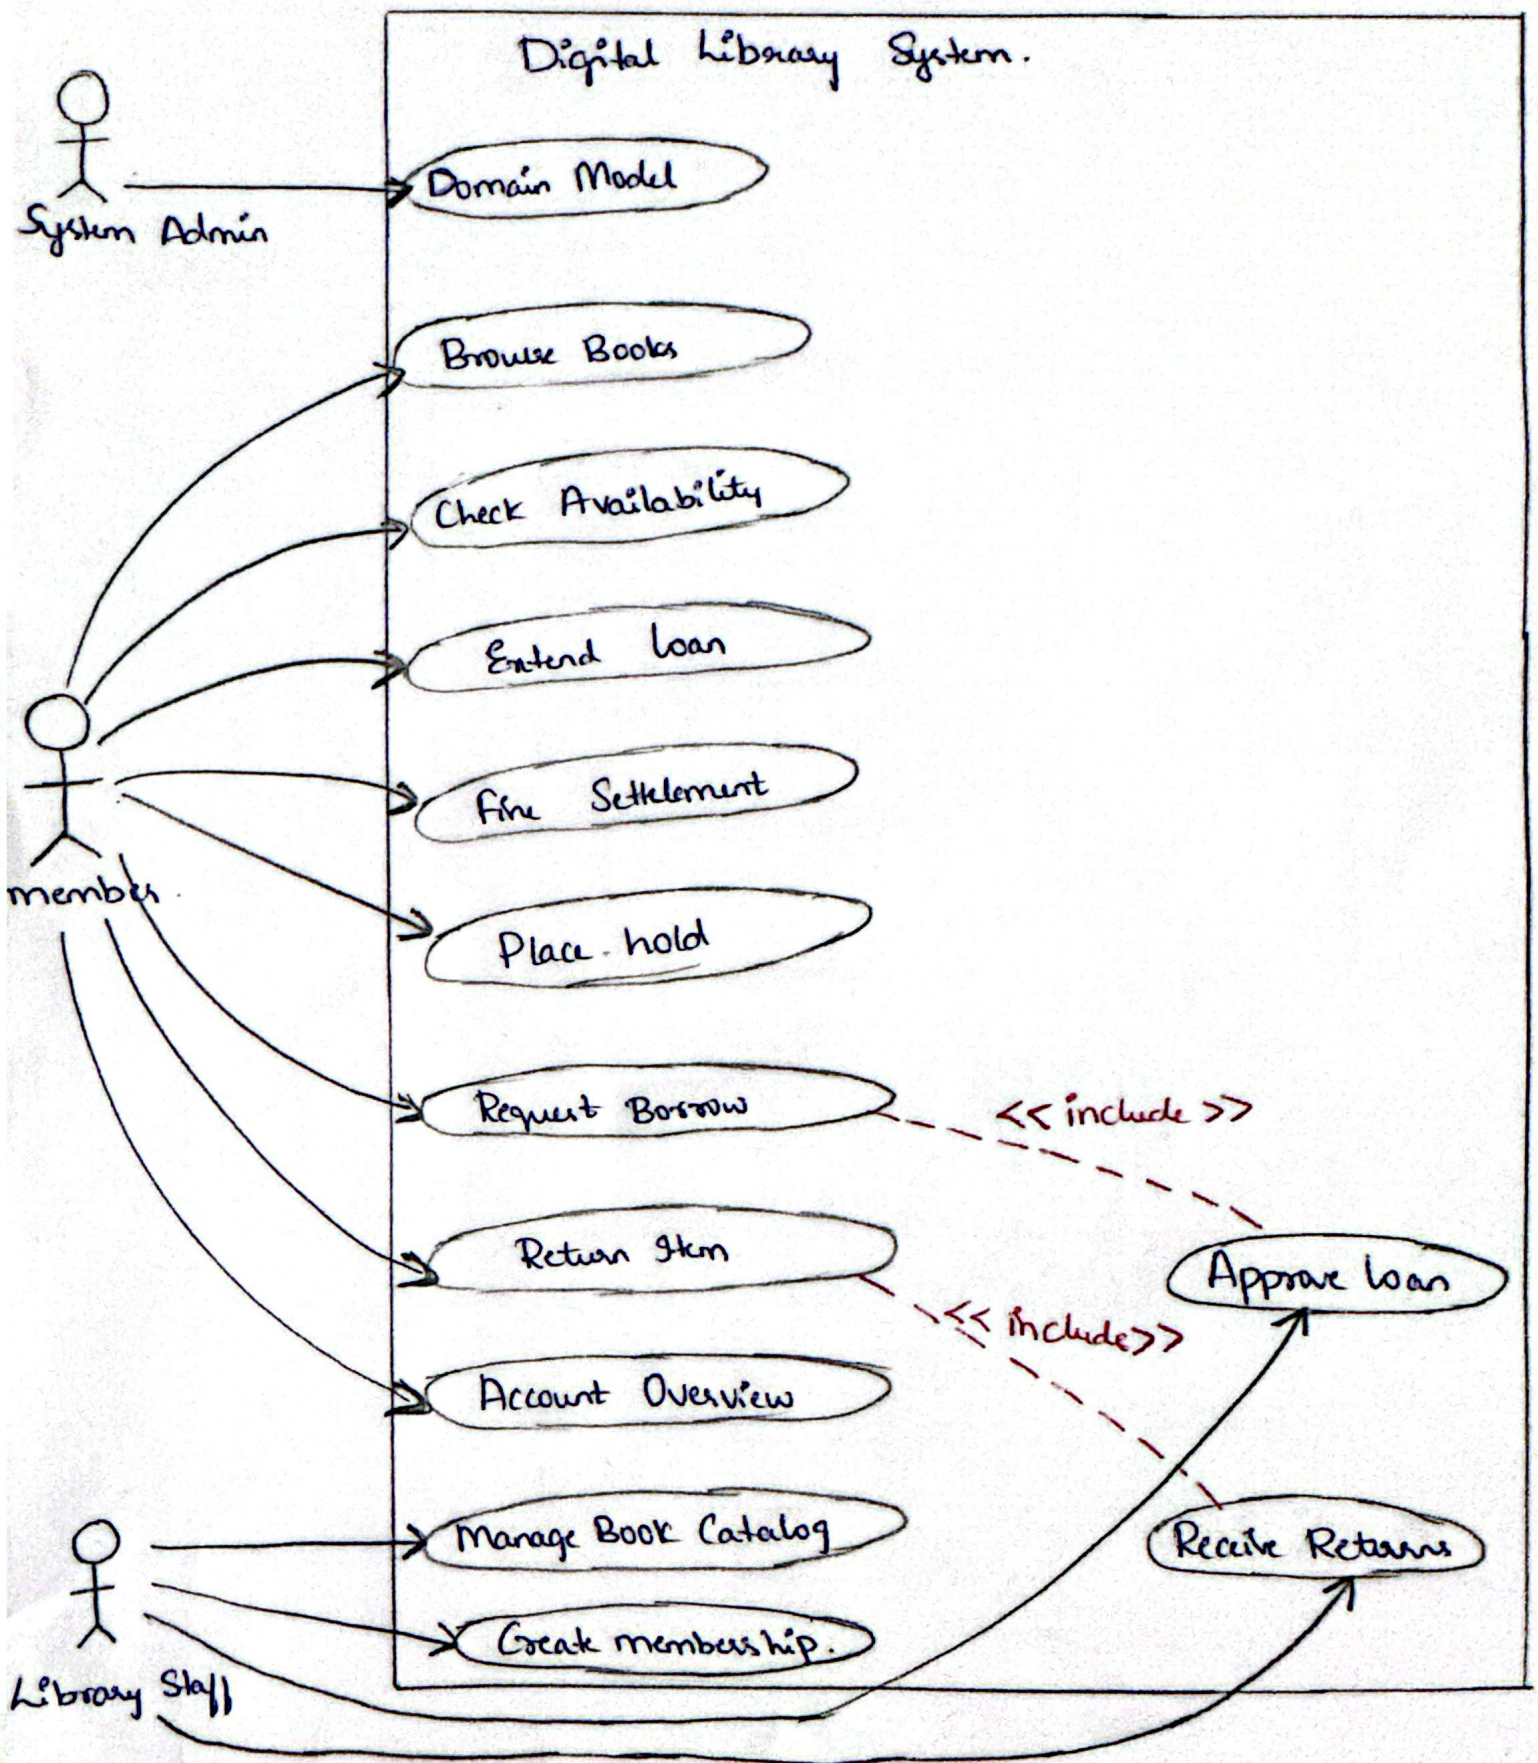 Digital Library System.
System Admin
Domain Model
Browse Books
Check Availability
Extend loan
Fine Settlement
member
Place hold
Request Borrow
<<include>>
Return Item
Approve loan
<<include>>
Account Overview
Manage Book Catalog
Receive Returns
Create membership.
Library Staff